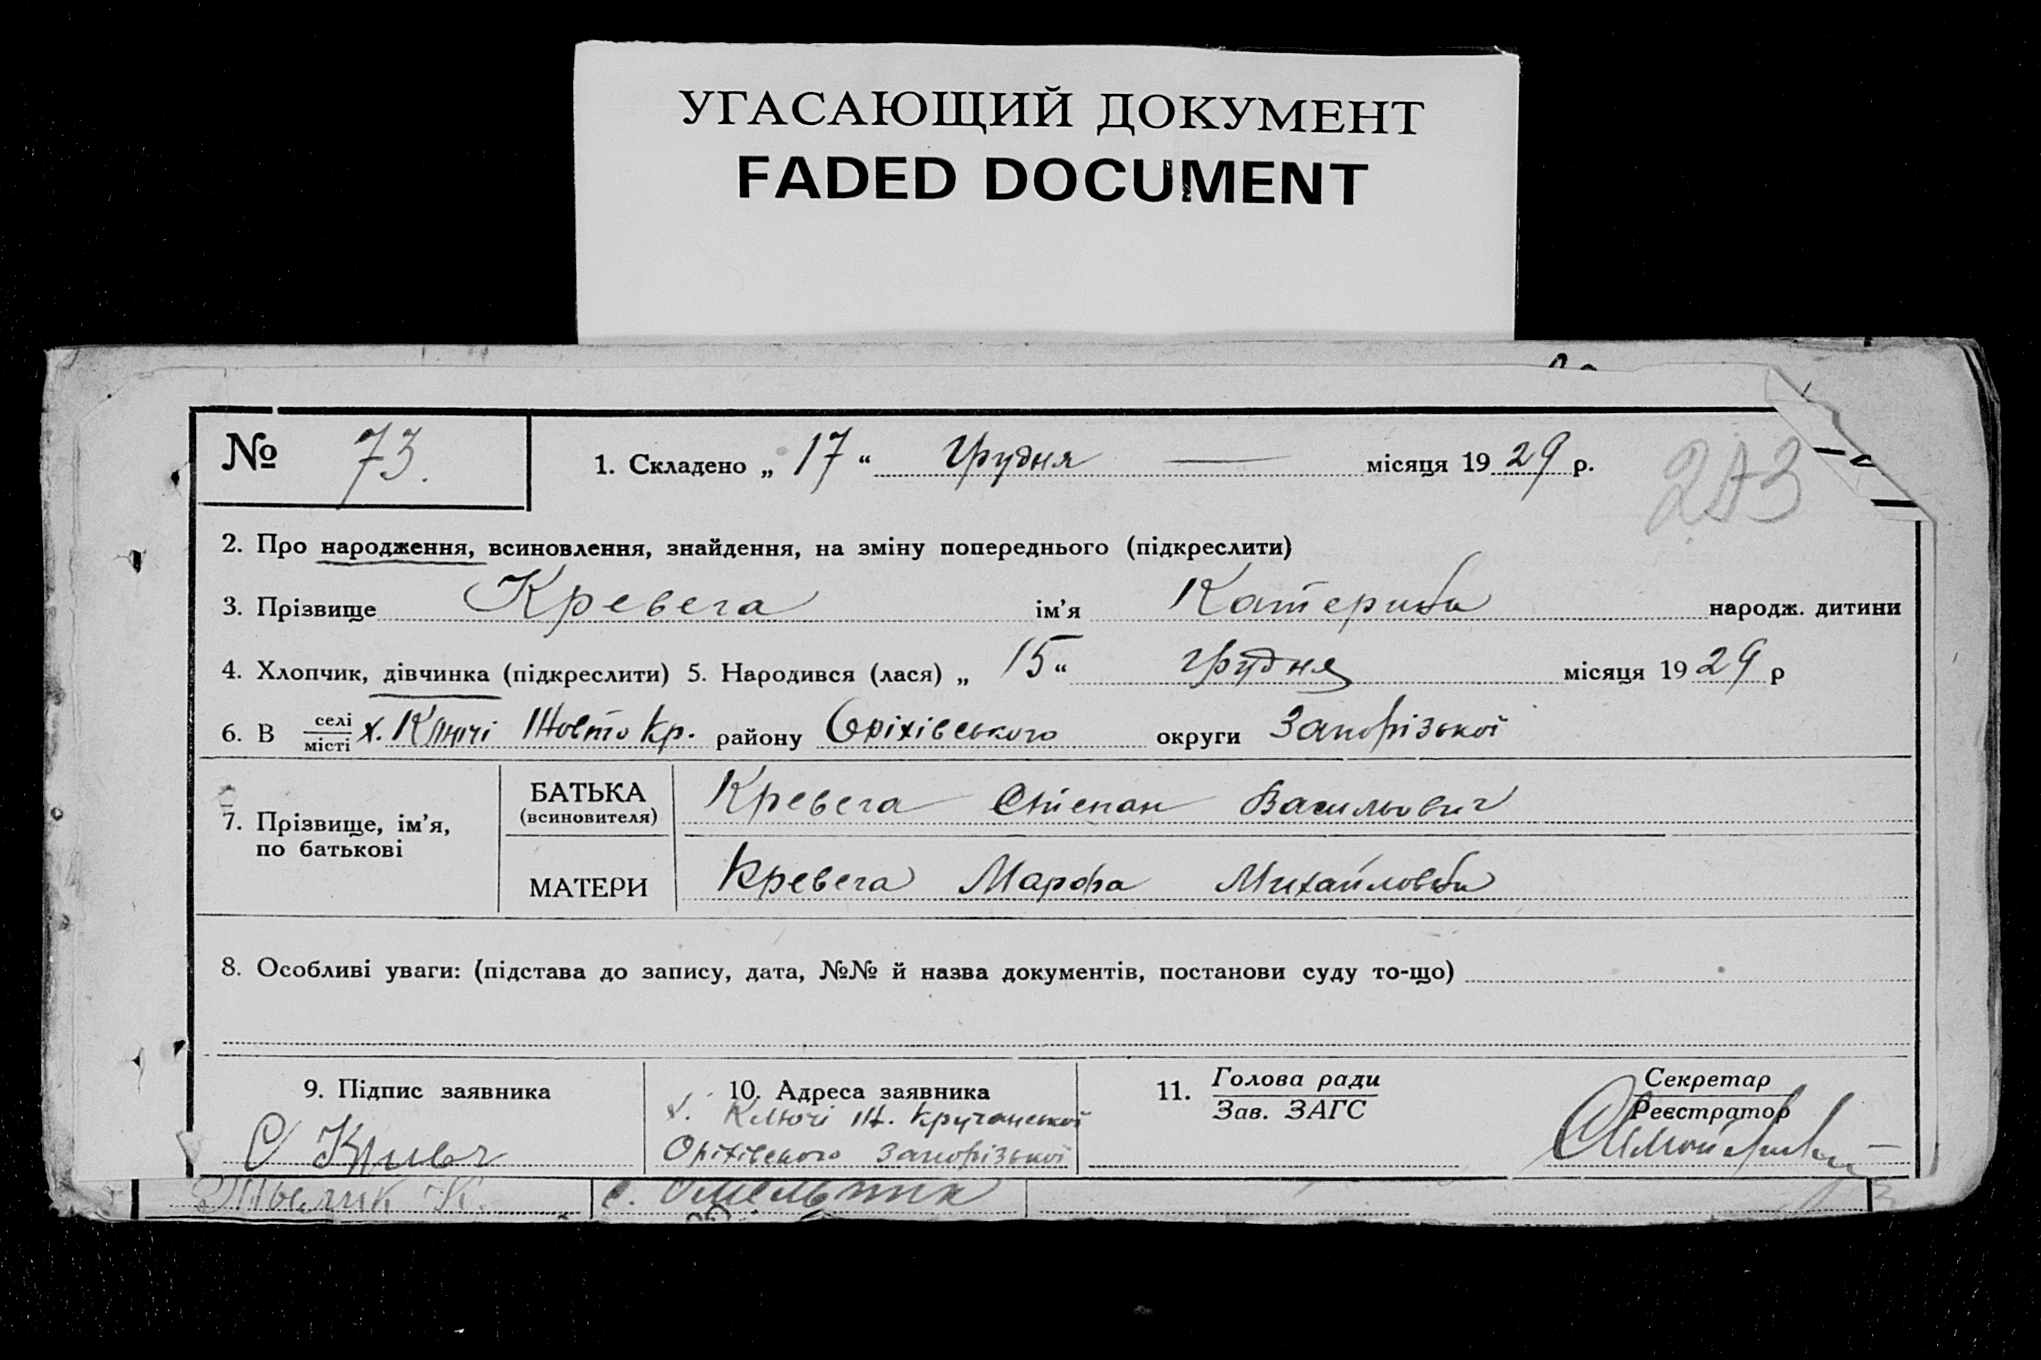 УГАСАЮЩИЙ ДОКУМЕНТ
FADED DOCUMENT
№ 73. 1. Складено „ 17 “ Грудня — місяця 19 29 р.
2. Про народження, всиновлення, знайдення, на зміну попереднього (підкреслити)
3. Прізвище Кревега ім’я Катерина народж. дитини
4. Хлопчик, дівчинка (підкреслити) 5. Народився (лася) „ 15 “ грудня місяця 19 29 р
6. В селі місті х. Ключі Жовто Кр. району Оріхівського округи Запорізької
7. Прізвище, ім’я, по батькові
БАТЬКА (всиновителя) Кревега Степан Васильович
МАТЕРИ Кревега Марфа Михайловна
8. Особливі уваги: (підстава до запису, дата, №№ й назва документів, постанови суду то-що)
9. Підпис заявника 10. Адреса заявника 11. Голова ради Зав. ЗАГС Секретар Реєстратор
х. Ключі Ж. Кручанської
Оріхівского Запорізької
С
с. Омельник